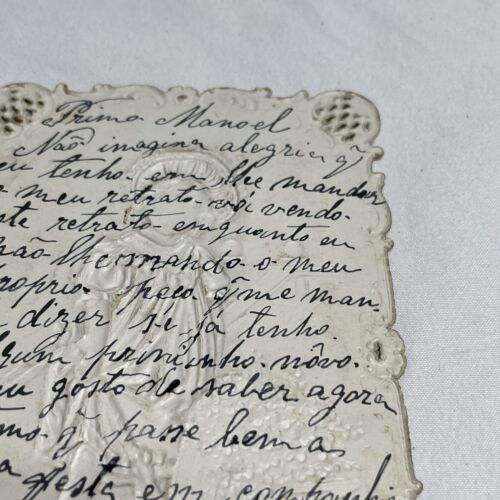 Primo Manoel
Não imagina alegria q̃
eu tenho em lhe mandar
o meu retrato vai vendo
este retrato emquanto eu
não lhe mando o meu
proprio peço q̃ me man-
dizer se já tenho
algum priminho nôvo.
eu gosto de saber agora
como q̃ passe bem as
a festa em companhi